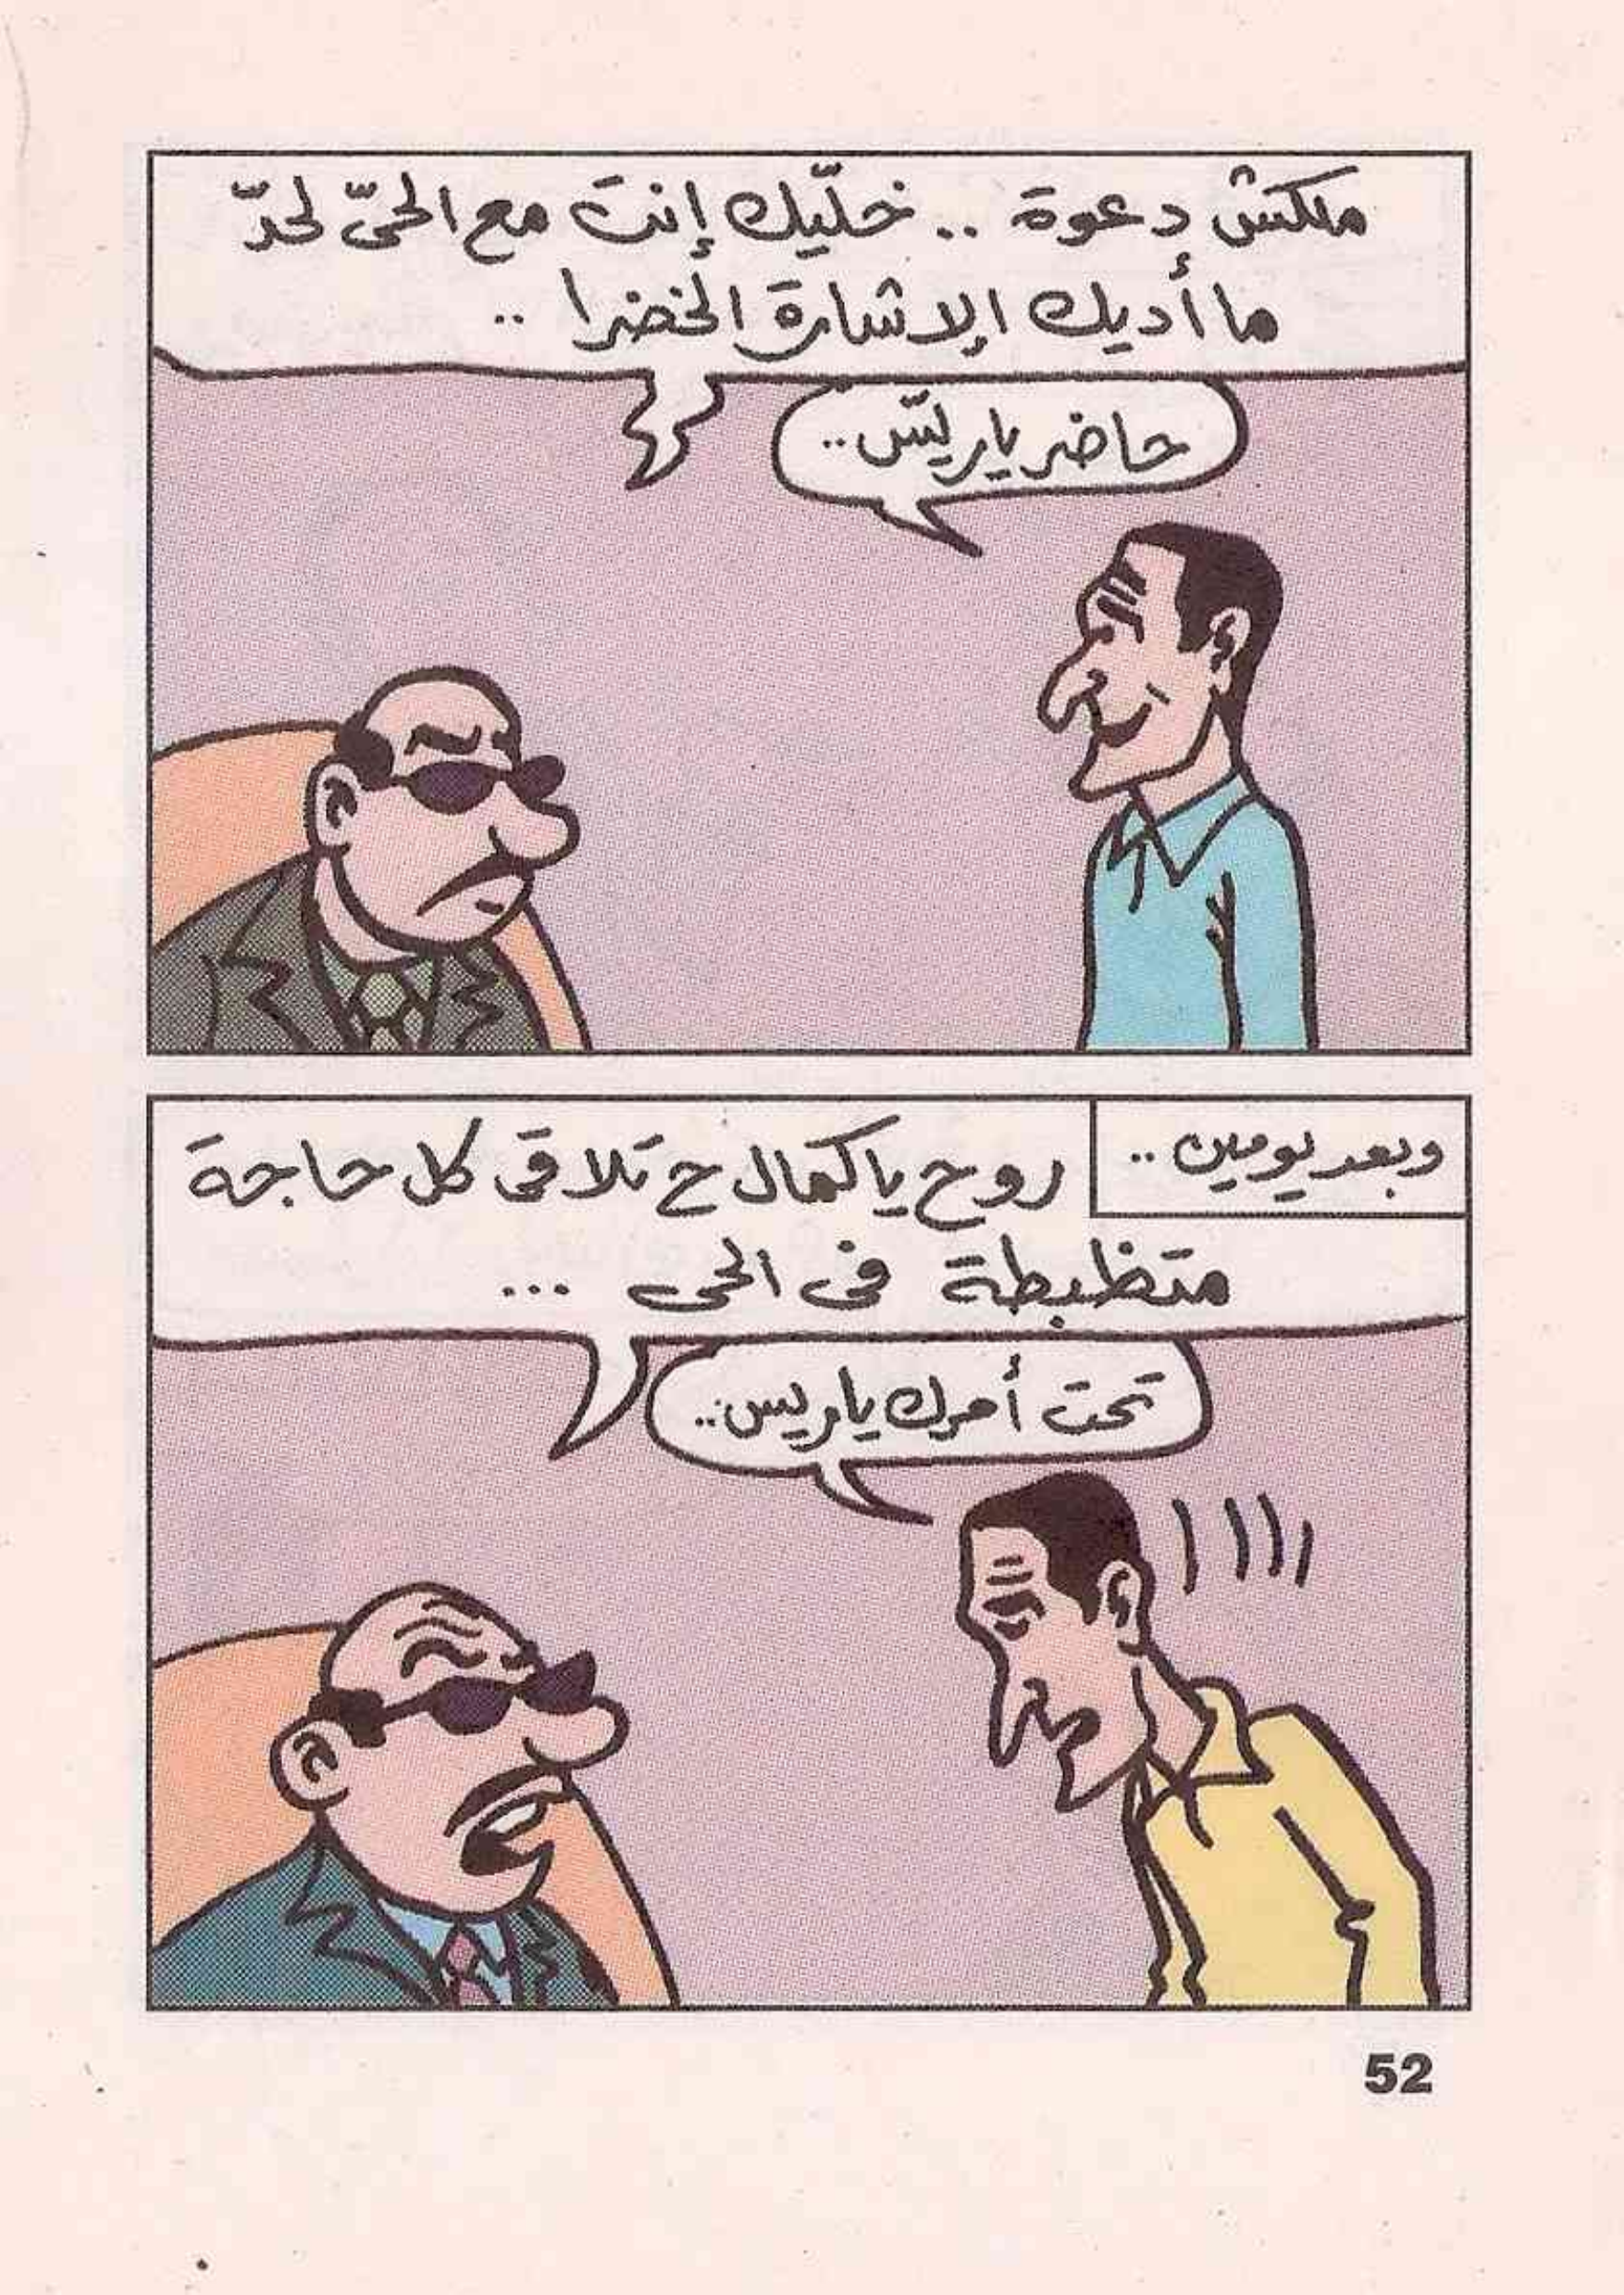 ملكش دعوة .. خلّيك إنت مع الحىّ لحدّ
ما أديك الإشارة الخضرا ..
حاضر ياريّس ..
وبعد يومين ..
روح يا كمال ح تلاقى كل حاجة
متظبطة فى الحى ...
تحت أمرك ياريس ..
52